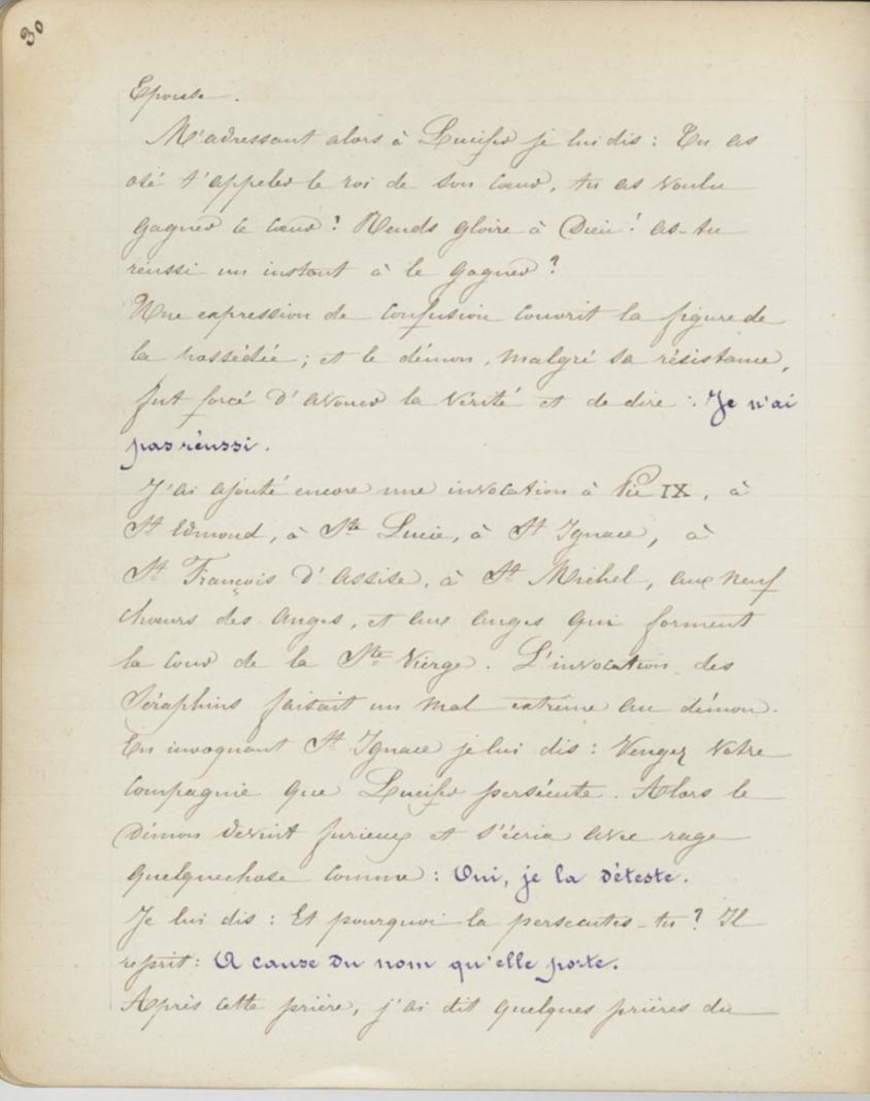 30
Epouse.
M'adressant alors à Lucifer je lui dis : Tu as
osé t'appeler le roi de son cœur, tu as voulu
gagner ce cœur ? Rends gloire à Dieu ! as-tu
réussi un instant à le gagner ?
Une expression de confusion couvrit la figure de
la possédée ; et le démon, malgré sa résistance,
fut forcé d'avouer la vérité et de dire : Je n'ai
pas réussi.
J'ai ajouté encore une invocation à Pie IX, à
St Edmond, à Ste Lucie, à St Ignace, à
St François d'Assise, à St Michel, aux neuf
chœurs des anges, et aux anges qui forment
la cour de la Ste Vierge. L'invocation des
Séraphins faisait un mal extrême au démon.
En invoquant St Ignace je lui dis : Vengez votre
compagnie que Lucifer persécute. Alors le
démon devint furieux et s'écria avec rage
quelquechose comme : Oui, je la déteste.
Je lui dis : Et pourquoi la persécutes-tu ? Il
reprit : A cause du nom qu'elle porte.
Après cette prière, j'ai dit quelques prières du